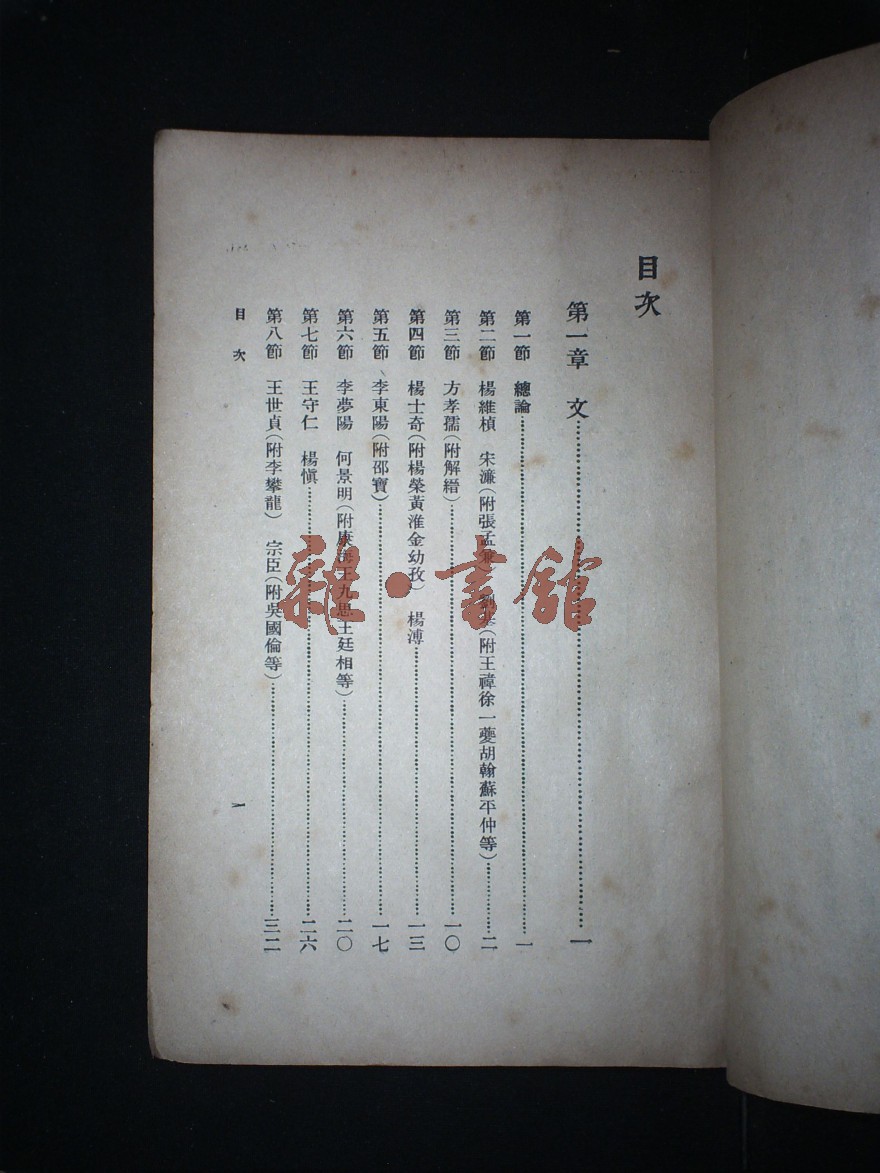 目次
第一章 文……一
第一節 總論……一
第二節 楊維楨 宋濂(附張孟兼) 劉基(附王褘徐一夔胡翰蘇平仲等)……二
第三節 方孝孺(附解縉)……一〇
第四節 楊士奇(附楊榮黃淮金幼孜) 楊溥……一三
第五節 李東陽(附邵寶)……一七
第六節 李夢陽 何景明(附康海王九思王廷相等)……二〇
第七節 王守仁 楊愼……二六
第八節 王世貞(附李攀龍) 宗臣(附吳國倫等)……三二
目次 一
雜·書館